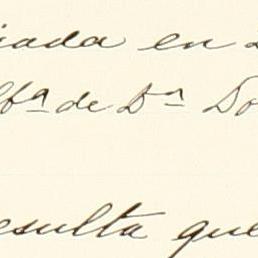 iada en
fª de Dª Do
esulta que